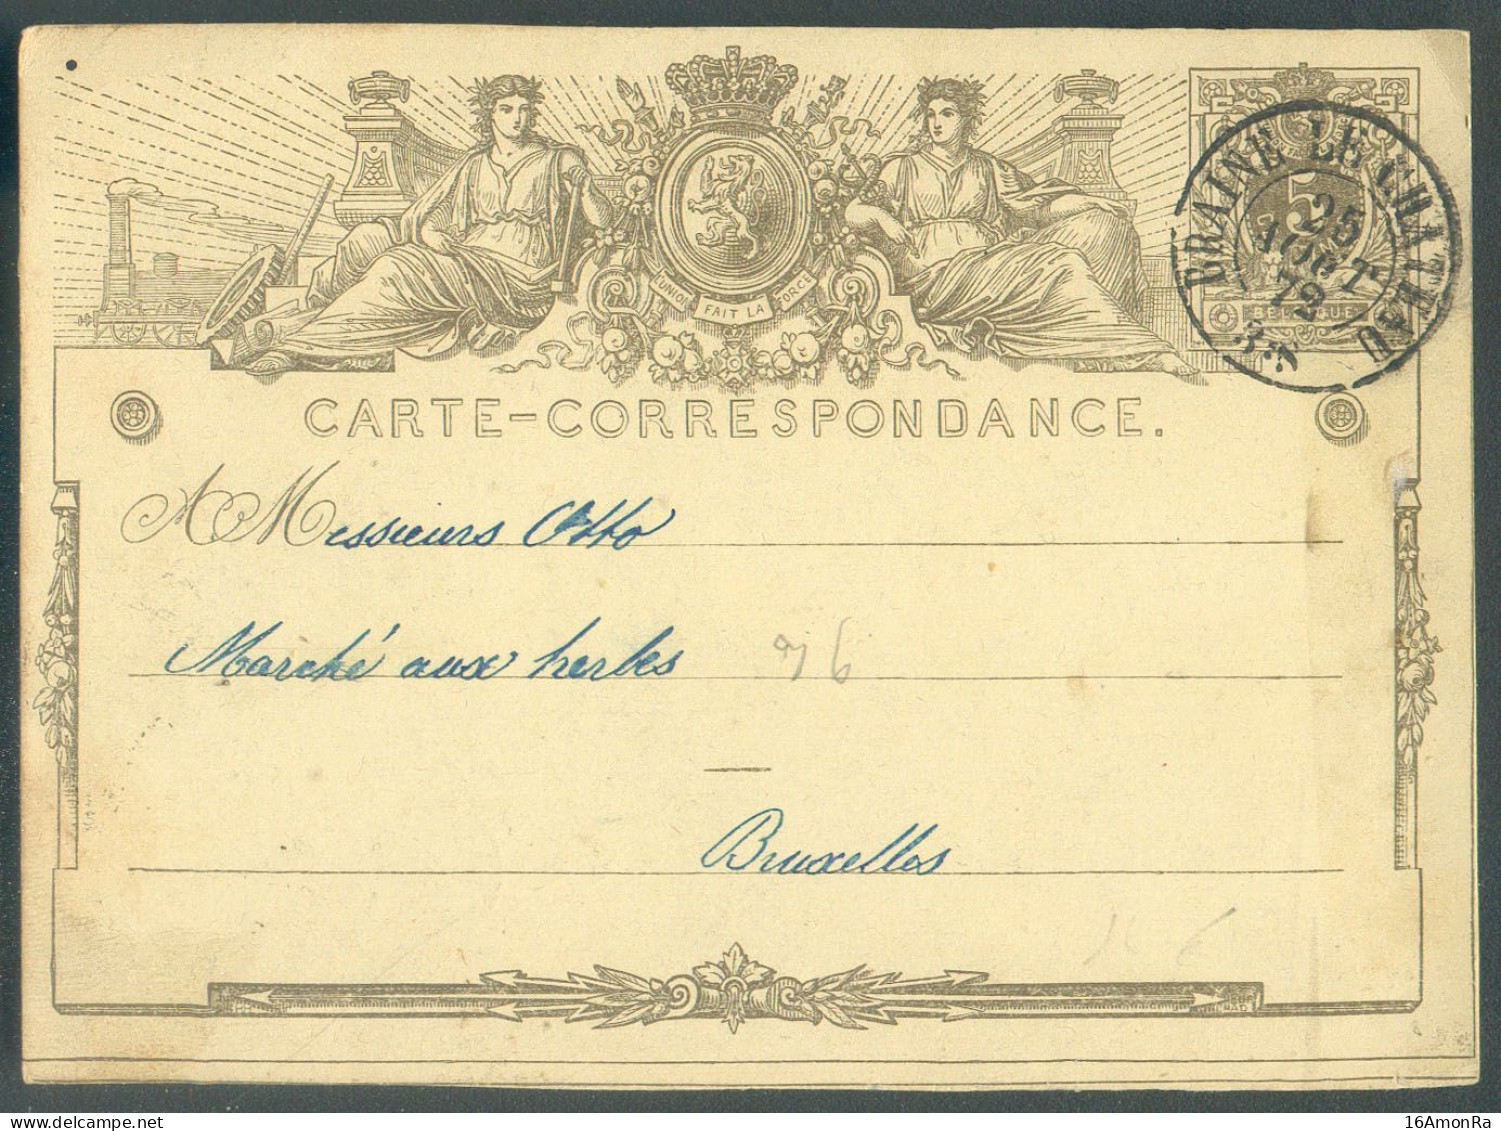 L'UNION FAIT LA FORCE
5
BELGIQUE
BRAINE LE CHATEAU
25
AOUT
72
3-S
CARTE-CORRESPONDANCE.
A Messieurs Otto
Marché aux herbes 76
Bruxelles
delcampe.net
16AmonRa